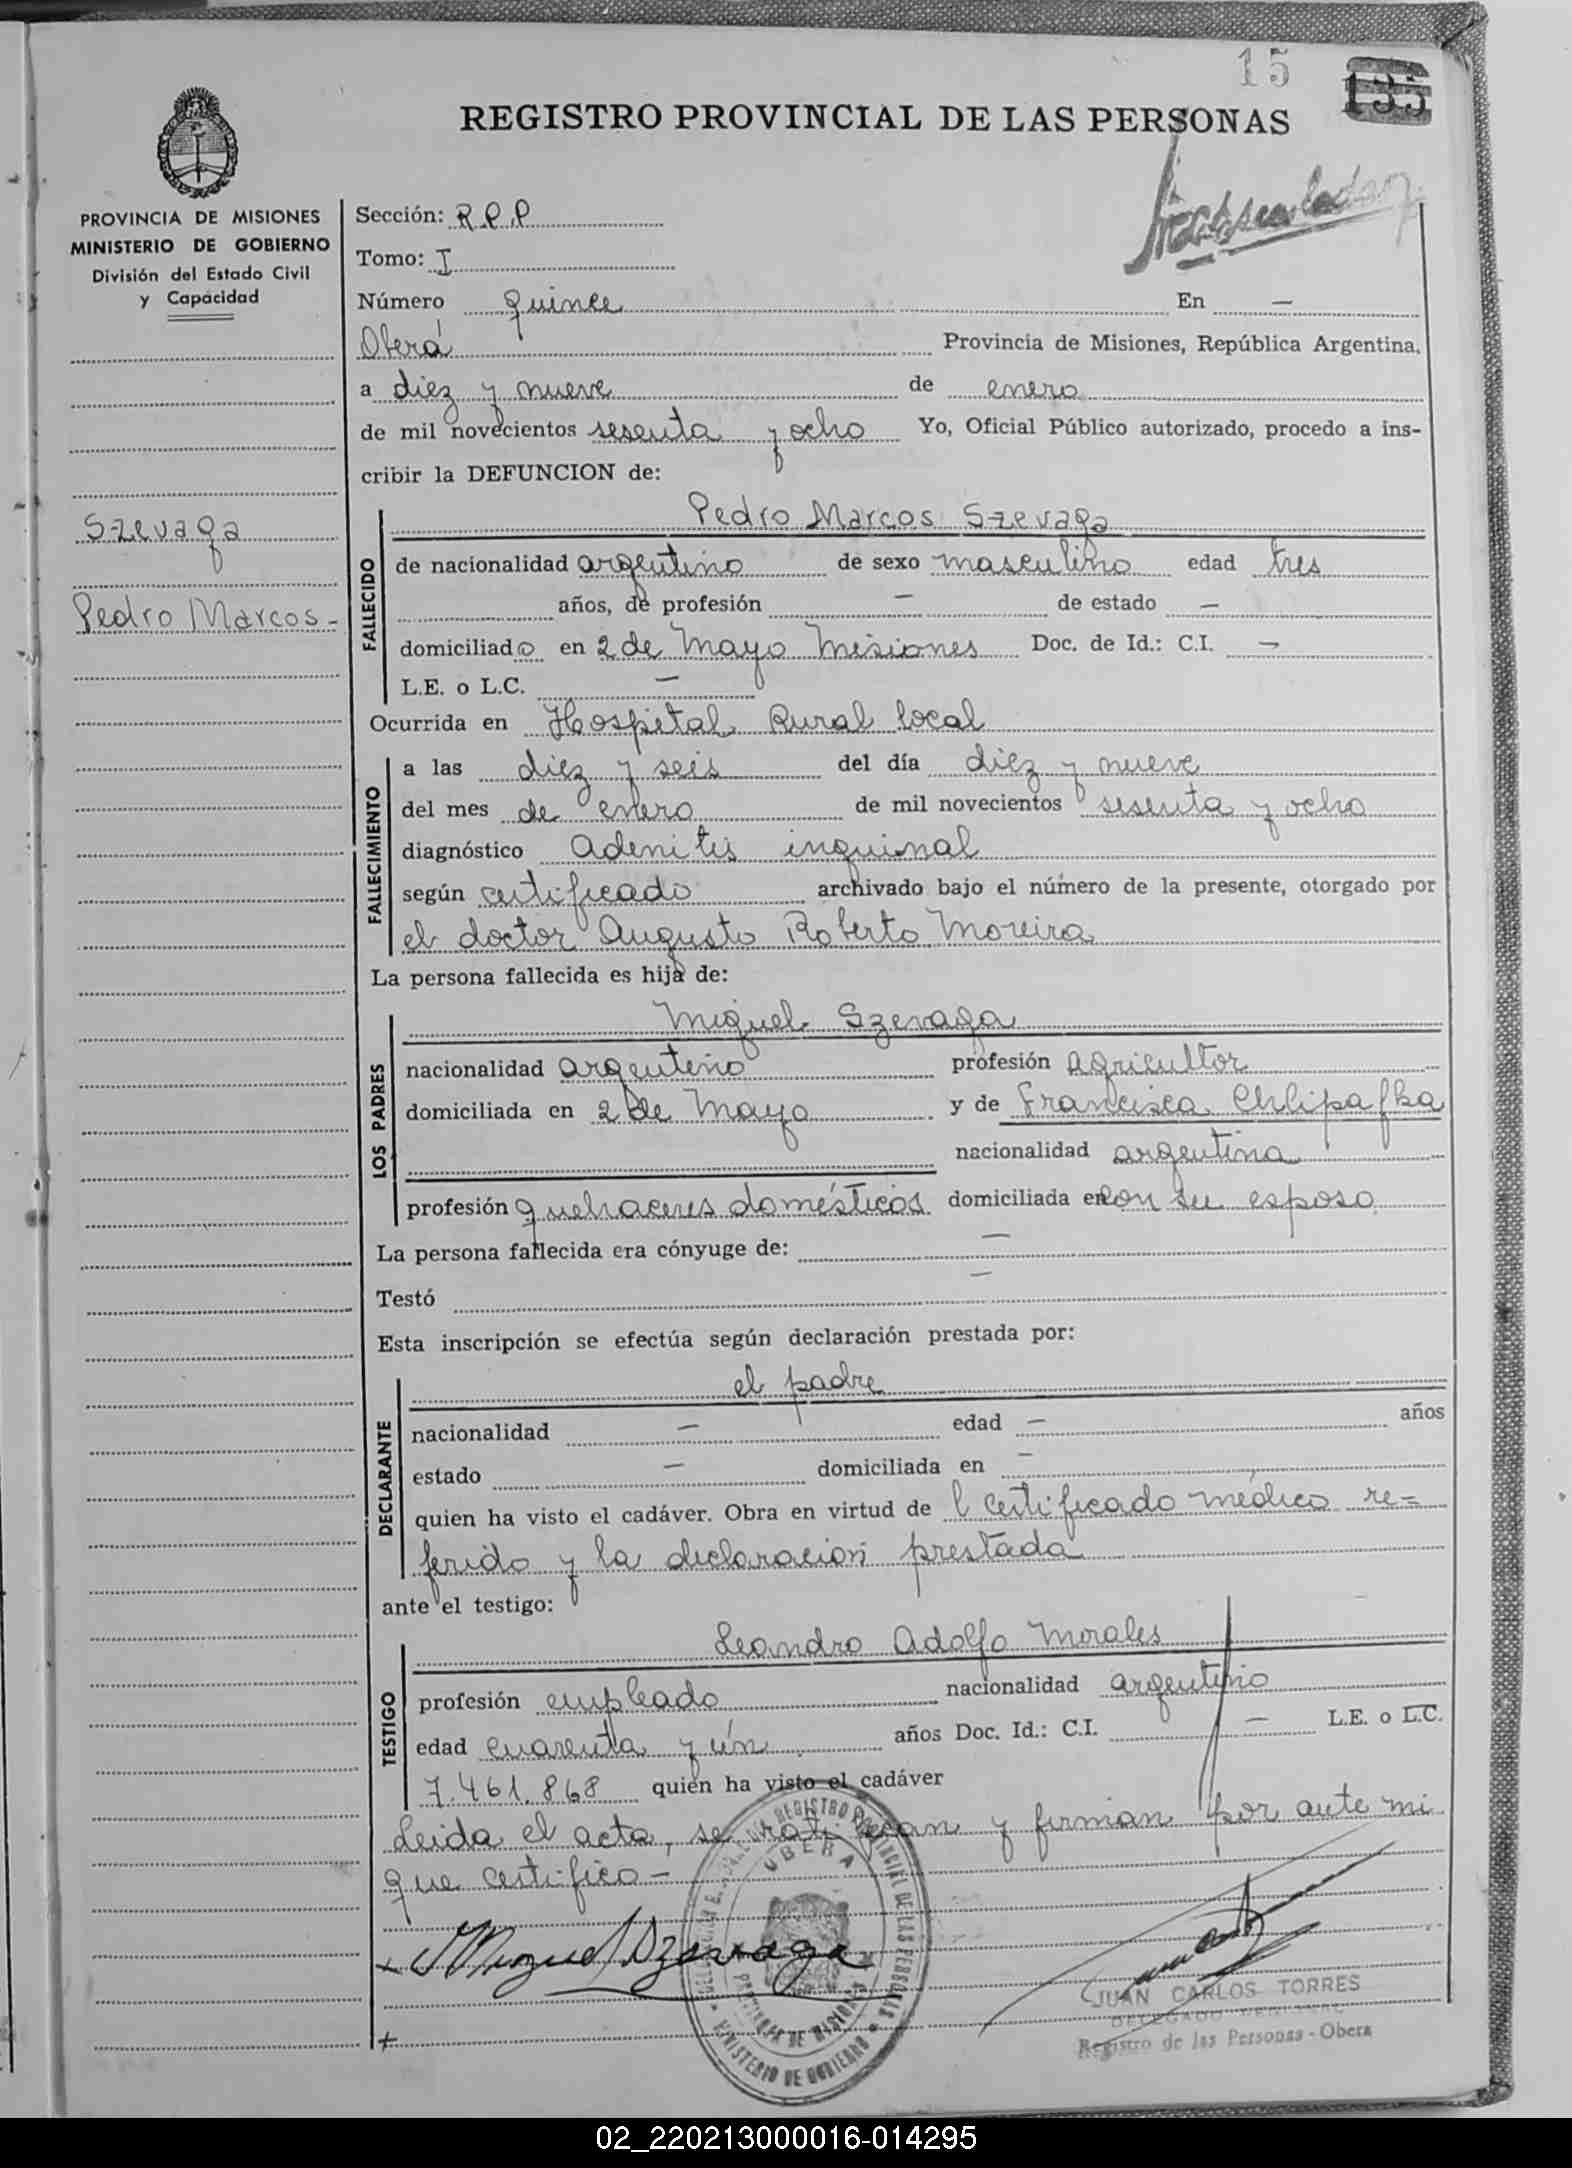 15
135
REGISTRO PROVINCIAL DE LAS PERSONAS
PROVINCIA DE MISIONES
MINISTERIO DE GOBIERNO
División del Estado Civil
y Capacidad
Szevaga
Pedro Marcos -
Sección: R.P.P
Tomo: I
Número quince En —
Oberá Provincia de Misiones, República Argentina,
a diez y nueve de enero
de mil novecientos sesenta y ocho Yo, Oficial Público autorizado, procedo a ins-
cribir la DEFUNCION de:
Pedro Marcos Szevaga
FALLECIDO
de nacionalidad argentino de sexo masculino edad tres
años, de profesión — de estado —
domiciliado en 2 de Mayo Misiones Doc. de Id.: C.I. —
L.E. o L.C. —
Ocurrida en Hospital Rural local
FALLECIMIENTO
a las diez y seis del día diez y nueve
del mes de enero de mil novecientos sesenta y ocho
diagnóstico Adenitis inguinal
según certificado archivado bajo el número de la presente, otorgado por
el doctor Augusto Roberto Moreira
La persona fallecida es hija de:
Miguel Szevaga
LOS PADRES
nacionalidad argentino profesión agricultor
domiciliada en 2 de Mayo y de Francisca Chlipafka
nacionalidad argentina
profesión quehaceres domésticos domiciliada en con su esposo
La persona fallecida era cónyuge de: —
Testó —
Esta inscripción se efectúa según declaración prestada por:
el padre
DECLARANTE
nacionalidad — edad — años
estado — domiciliada en —
quien ha visto el cadáver. Obra en virtud de l certificado médico re=
ferido y la declaración prestada
ante el testigo:
Leandro Adolfo Morales
TESTIGO
profesión empleado nacionalidad argentino
edad cuarenta y ún años Doc. Id.: C.I. — L.E. o L.C.
7.461.868 quien ha visto el cadáver
Leida el acta, se ratifican y firman por ante mi
que certifico -
Miguel Szevaga
REGISTRO PROVINCIAL DE LAS PERSONAS
OBERA
PROVINCIA DE MISIONES
MINISTERIO DE GOBIERNO
JUAN CARLOS TORRES
DELEGADO REGIONAL
Registro de las Personas - Obera
02_220213000016-014295